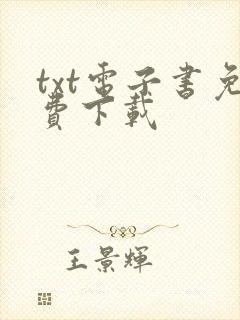 txt電子書免
費下載
王景輝